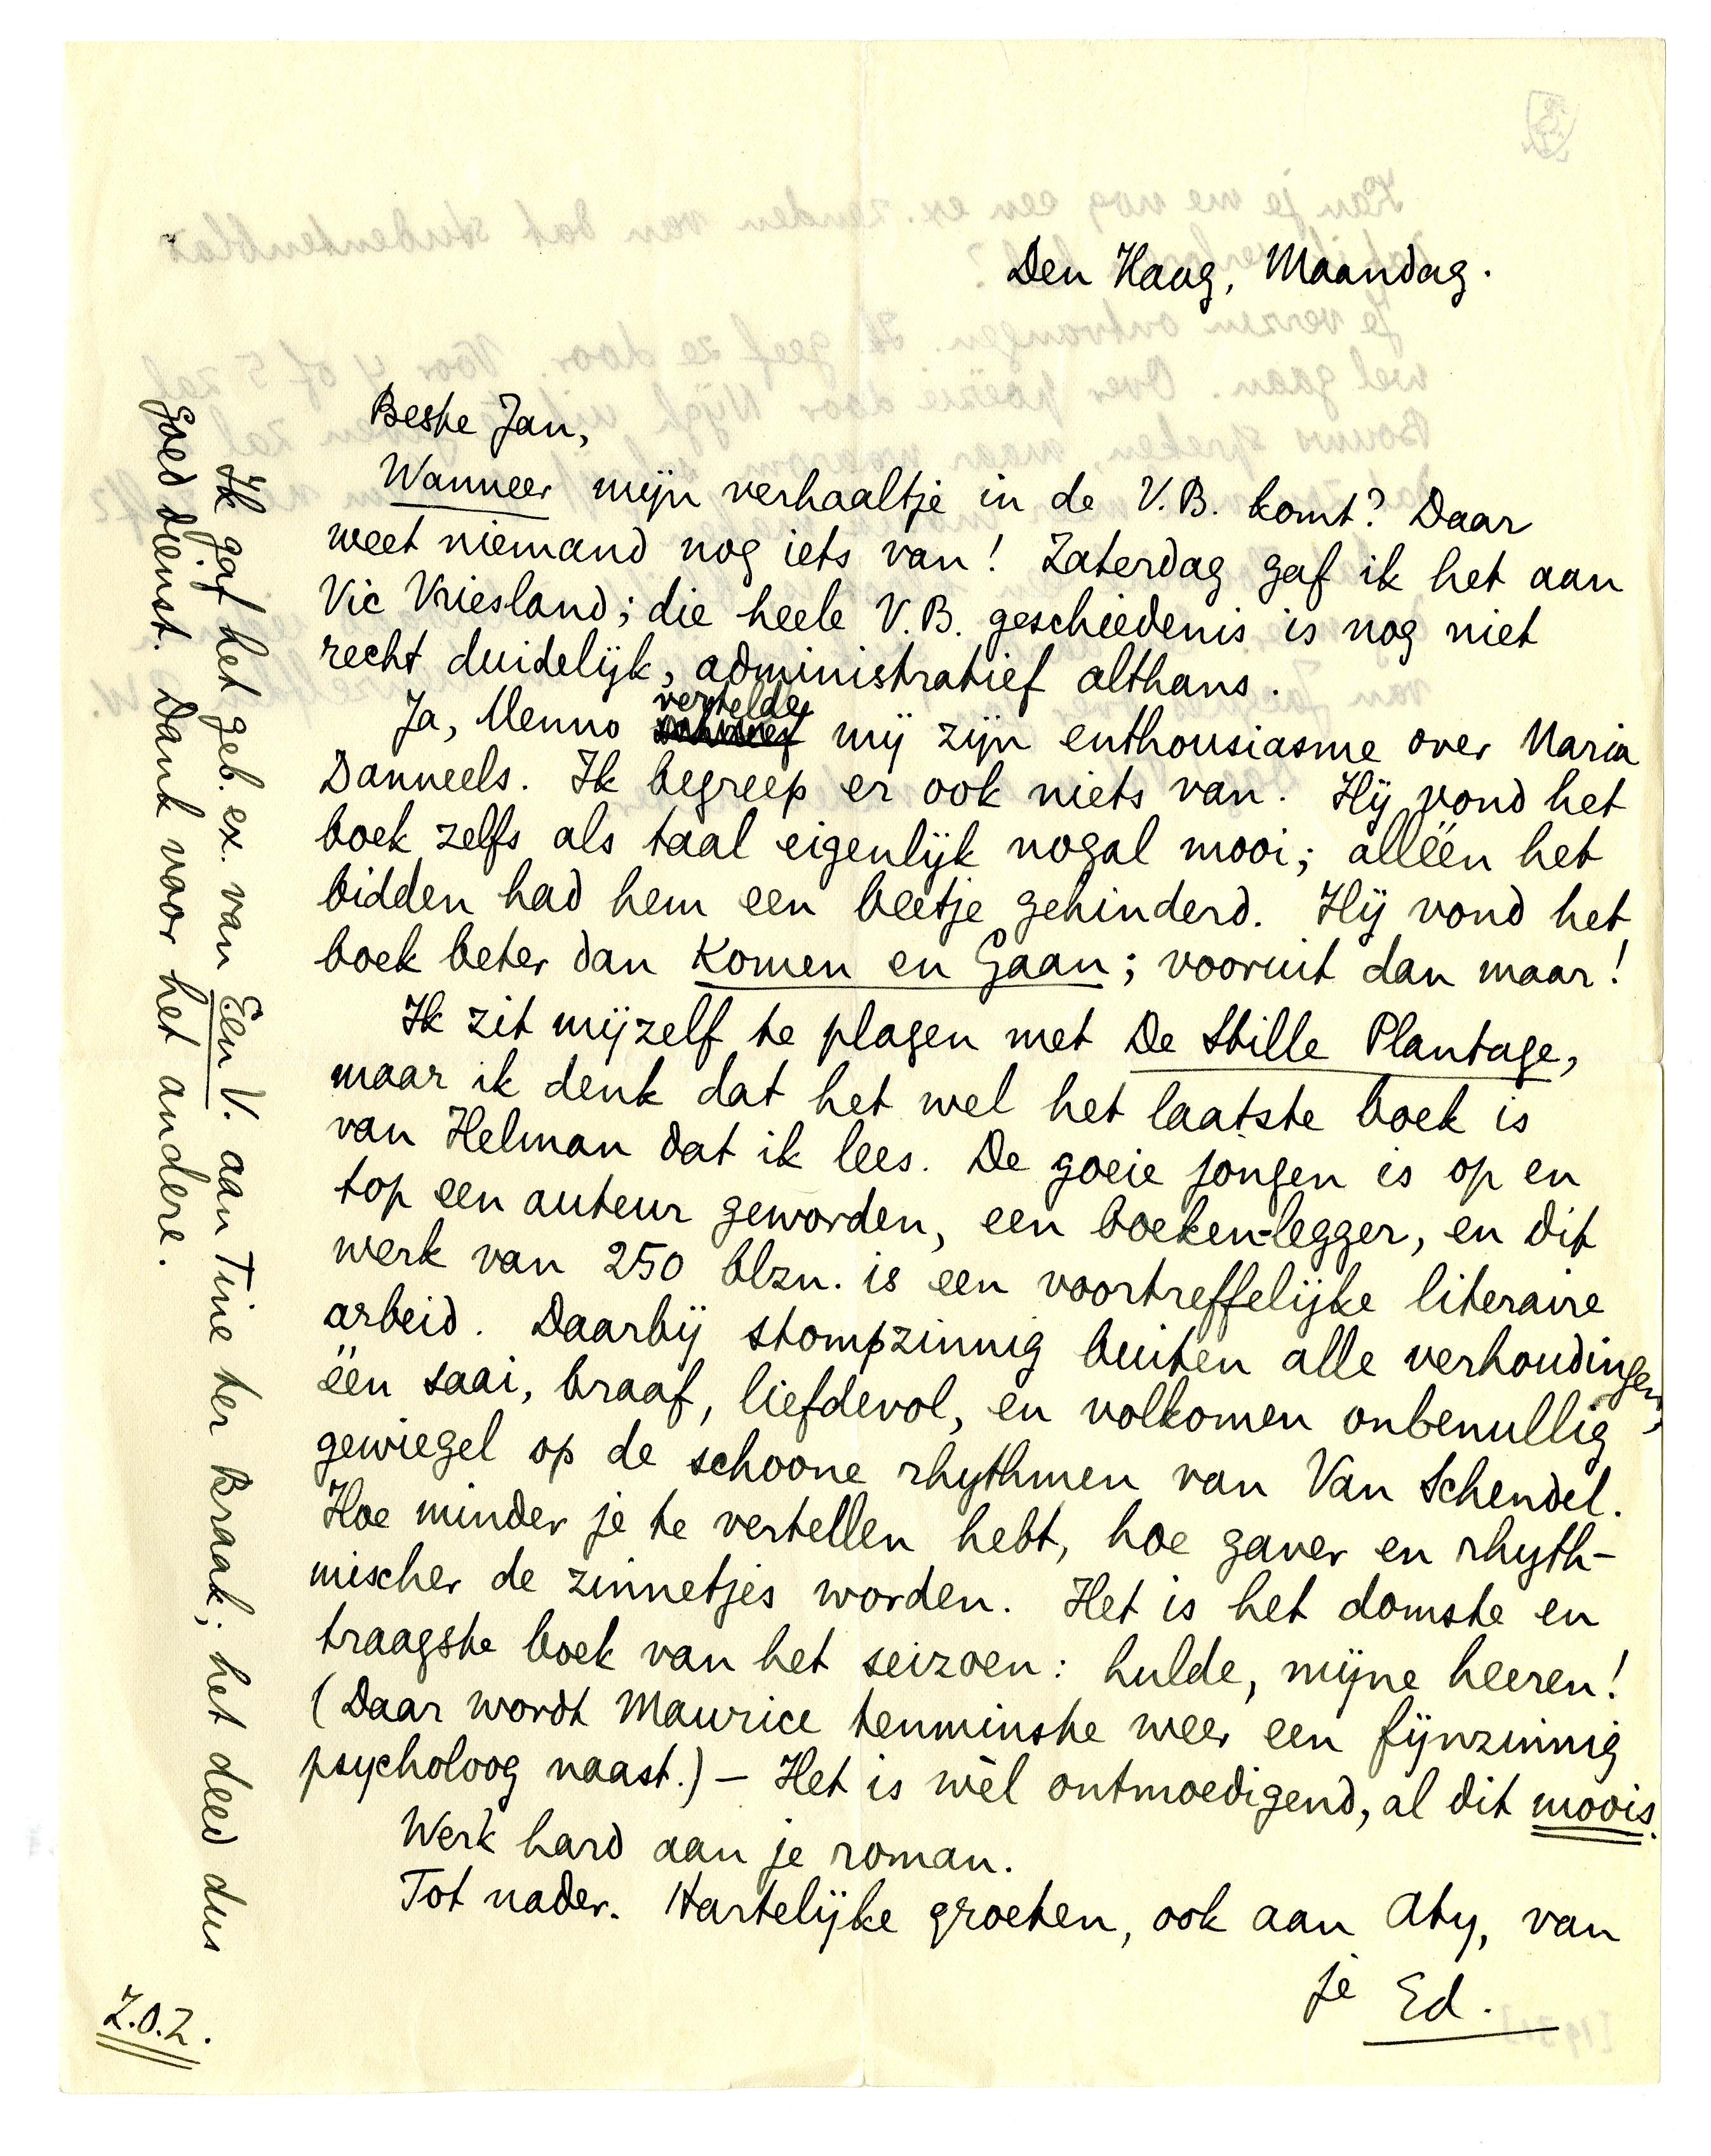 Den Haag, Maandag.
Beste Jan,
Wanneer mijn verhaaltje in de V.B. komt? Daar
weet niemand nog iets van! Zaterdag gaf ik het aan
Vic Vriesland; die heele V.B. geschiedenis is nog niet
recht duidelijk, administratief althans.
Ja, Menno vertelde mij zijn enthousiasme over Maria
Danneels. Ik begreep er ook niets van. Hij vond het
boek zelfs als taal eigenlijk nogal mooi; alléén het
bidden had hem een beetje gehinderd. Hij vond het
boek beter dan Komen en Gaan; vooruit dan maar!
Ik zit mijzelf te plagen met De Stille Plantage,
maar ik denk dat het wel het laatste boek is
van Helman dat ik lees. De goeie jongen is op en
top een auteur geworden, een boeken-legger, en dit
werk van 250 blzn. is een voortreffelijke literaire
arbeid. Daarbij stompzinnig buiten alle verhoudingen,
één saai, braaf, liefdevol, en volkomen onbenullig
gewiegel op de schoone rhythmen van Van Schendel.
Hoe minder je te vertellen hebt, hoe gaver en rhyth-
mischer de zinnetjes worden. Het is het domste en
traagste boek van het seizoen: hulde, mijne heeren!
(Daar wordt Maurice tenminste weer een fijnzinnig
psycholoog naast.) – Het is wèl ontmoedigend, al dit moois.
Werk hard aan je roman.
Tot nader. Hartelijke groeten, ook aan Aty, van
je Ed.
Z.O.Z.
Ik gaf het geb. ex. van Een V. aan Tine ter Braak; het deed dus
goed dienst. Dank voor het andere.